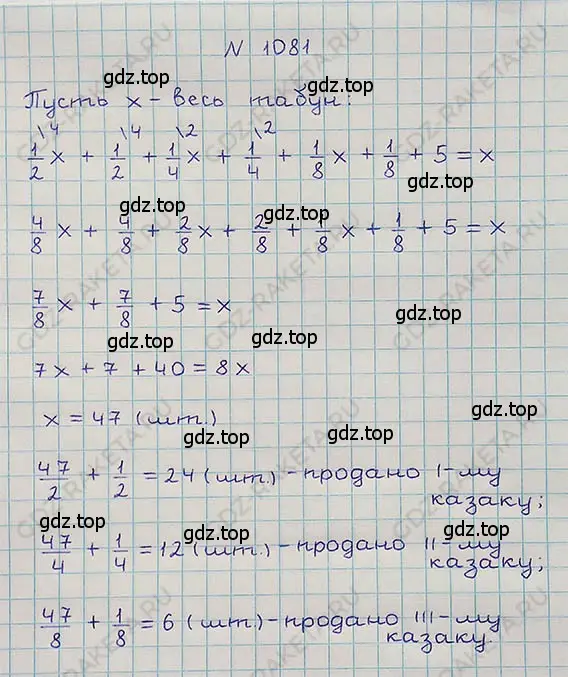 N 1081
gdz.top
Пусть x - весь табун:
\4 \4 \2 \2
1/2 x + 1/2 + 1/4 x + 1/4 + 1/8 x + 1/8 + 5 = x
gdz.top gdz.top
4/8 x + 4/8 + 2/8 x + 2/8 + 1/8 x + 1/8 + 5 = x
gdz.top
7/8 x + 7/8 + 5 = x
gdz.top
gdz.top
7x + 7 + 40 = 8x
gdz.top
x = 47 (шт.)
gdz.top
47/2 + 1/2 = 24 (шт.) - продано I-му
казаку;
gdz.top
gdz.top gdz.top
47/4 + 1/4 = 12 (шт.) - продано II-му
казаку;
gdz.top
47/8 + 1/8 = 6 (шт.) - продано III-му
казаку.
GDZ-RAKETA.RU